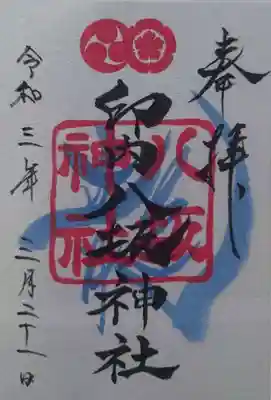 奉拝
印内八坂神社
八坂
神社
令和三年 三月二十一日